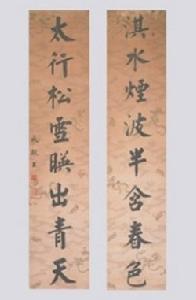 淇水煙波半含春色
太行松雪映出青天
成親王